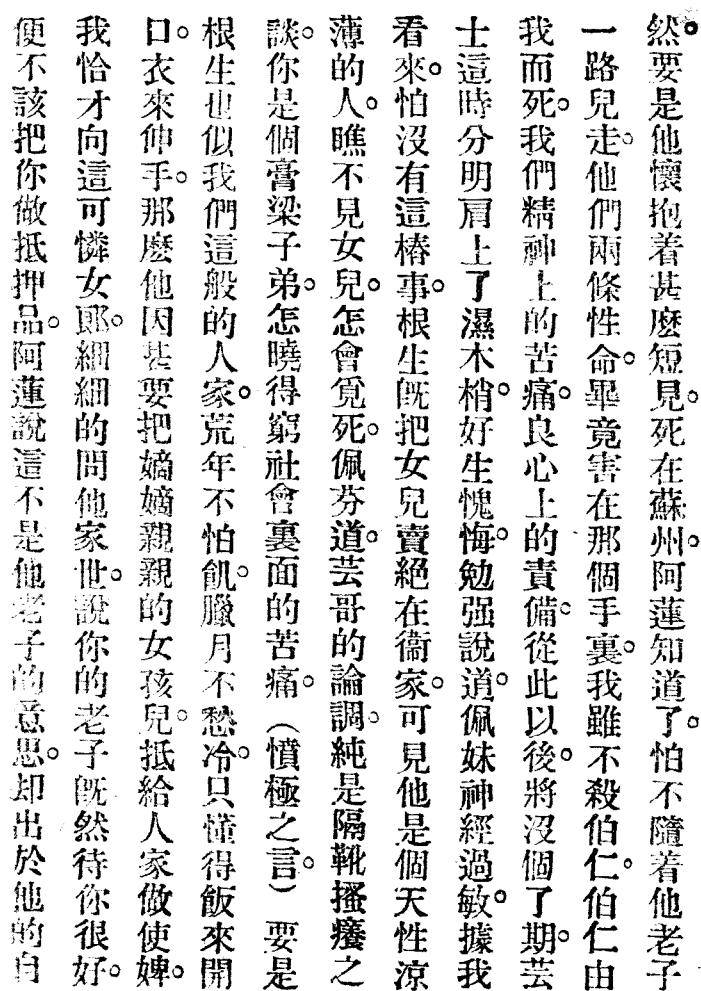 然。要是他懷抱着甚麽短見。死在蘇州。阿蓮知道了。怕不隨着他老子
一路兒走。他們兩條性命。畢竟害在那個手裏。我雖不殺伯仁。伯仁由
我而死。我們精神上的苦痛。良心上的責備。從此以後。將沒個了期。芸
士這時分明肩上了濕木梢。好生愧悔。勉强說道。佩妹神經過敏。據我
看來。怕沒有這樁事。根生旣把女兒賣絕在衞家。可見他是個天性涼
薄的人。瞧不見女兒。怎會覓死。佩芬道。芸哥的論調。純是隔靴搔癢之
談。你是個膏粱子弟。怎曉得窮社會裏面的苦痛。（憤極之言。）要是
根生也似我們這般的人家。荒年不怕飢。臘月不愁冷。只懂得飯來開
口。衣來伸手。那麽他因甚要把嫡嫡親親的女孩兒。抵給人家做使婢。
我恰才向這可憐女郎。細細的問他家世。說你的老子旣然待你很好。
便不該把你做抵押品。阿蓮說這不是他老子的意思。却出於他的自